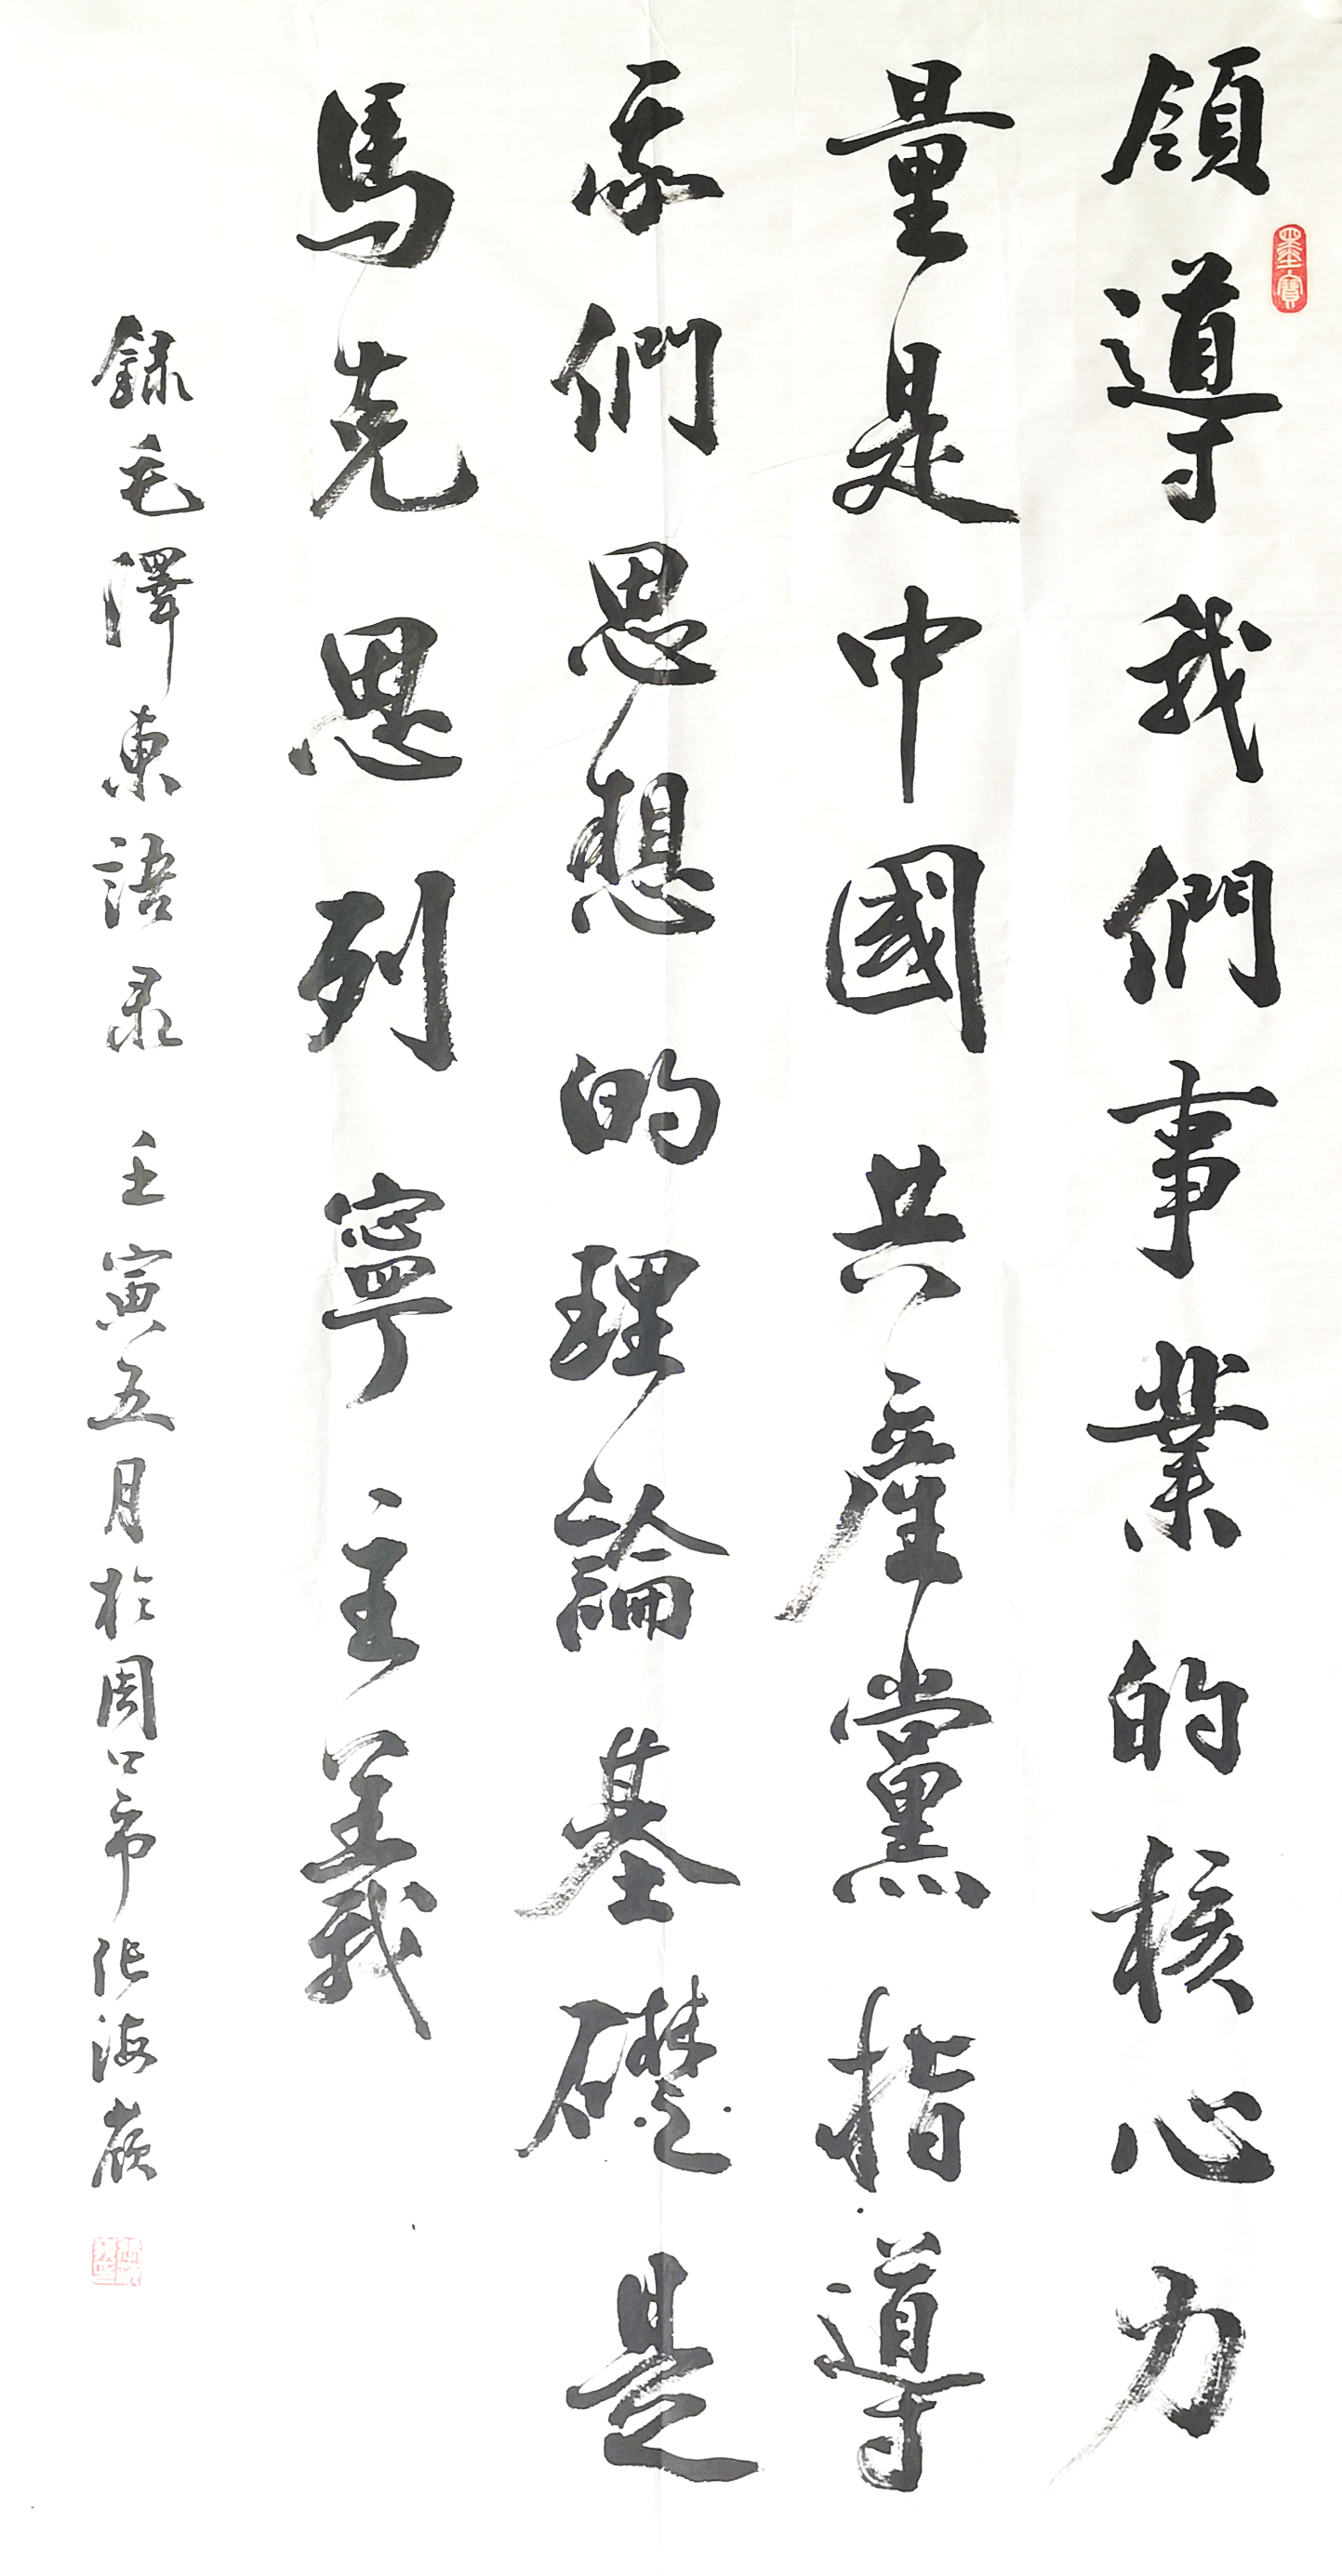 墨寶
領導我們事業的核心力
量是中國共産黨指導
我們思想的理論基礎是
馬克思列寧主義
録毛澤東語录 壬寅五月於周口市 张海嶺